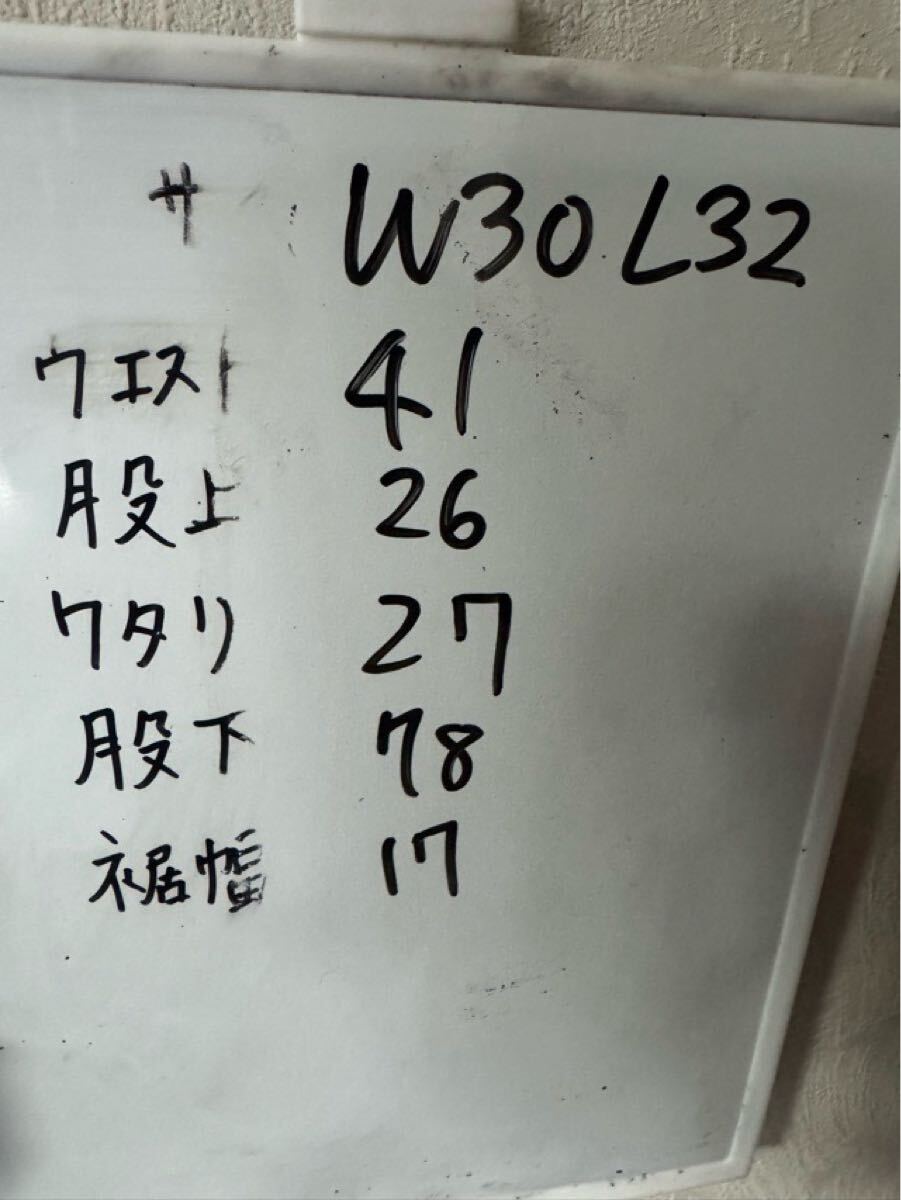 サ W30 L32
ウエスト 41
股上 26
ワタリ 27
股下 78
裾幅 17